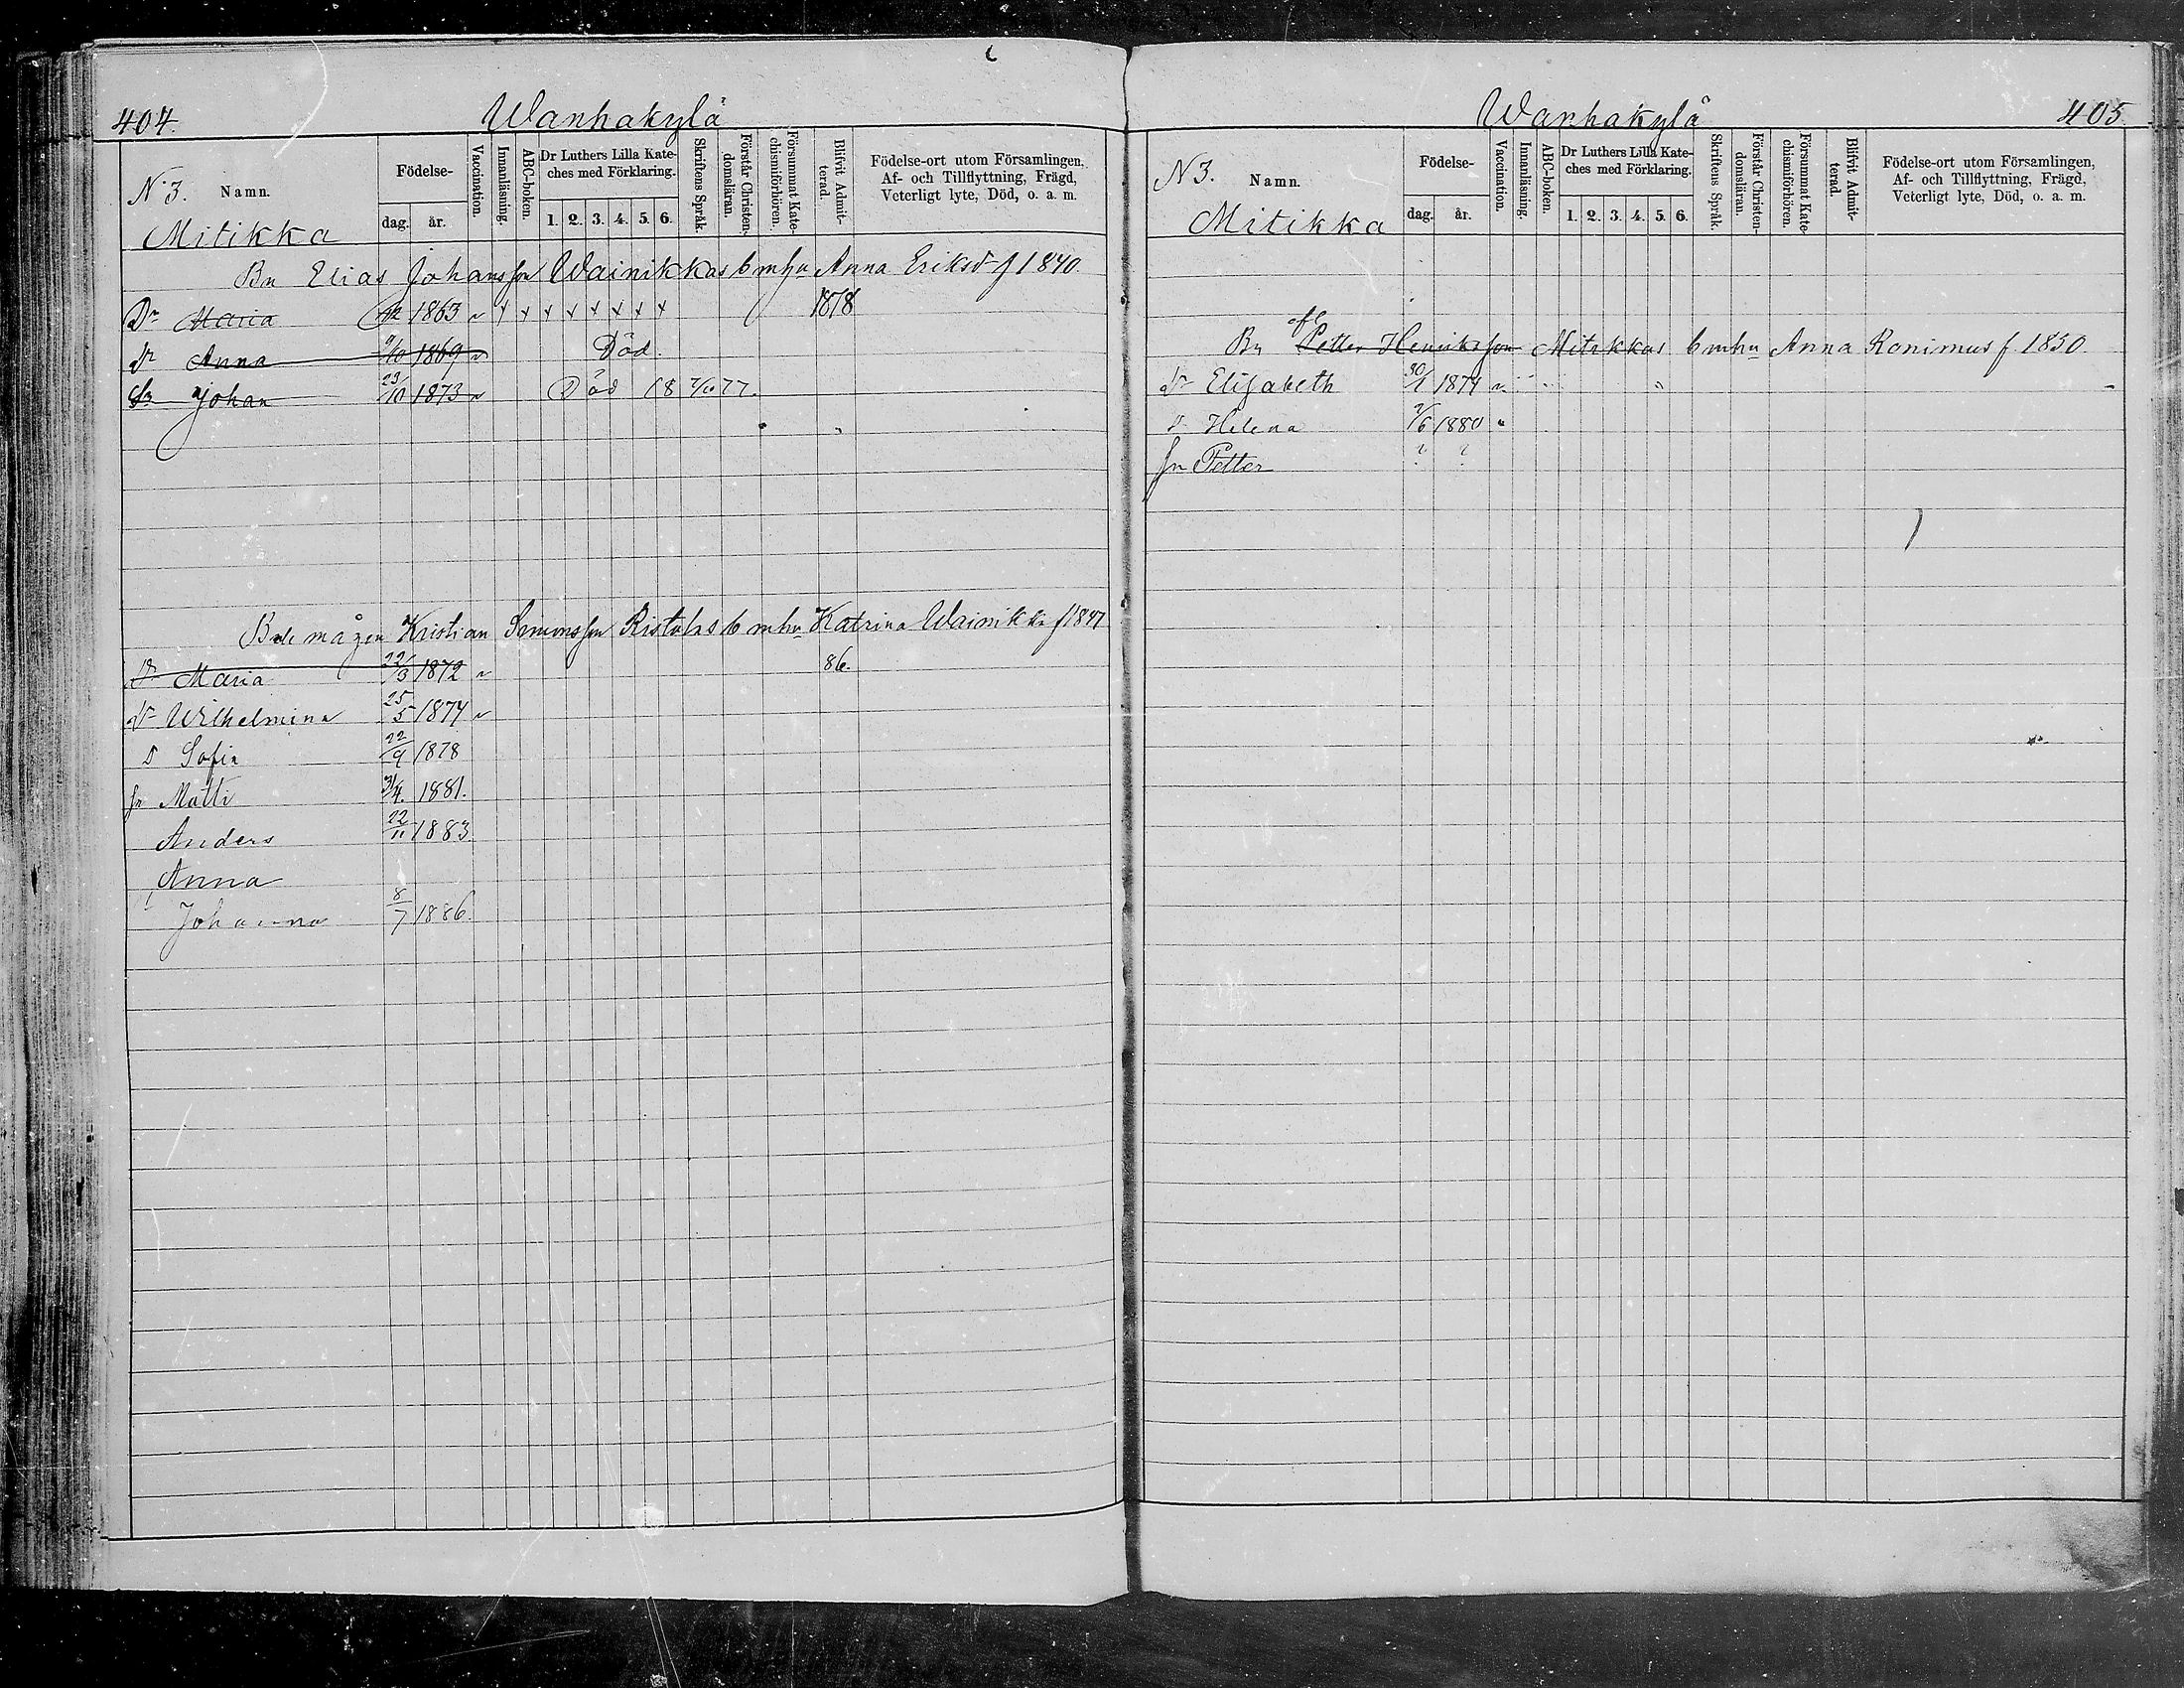 404.
Wanhakylä
N:3. Namn.
Mitikka
Födelse-
dag. år.
Vaccination.
Innanläsning.
ABC-boken.
Dr Luthers Lilla Kate-
ches med Förklaring.
1. 2. 3. 4. 5. 6.
Skriftens Språk.
Förstår Christen-
domsläran.
Försummat Kate-
chismiförhören.
Blifvit Admit-
terad.
Födelse-ort utom Församlingen,
Af- och Tillflyttning, Frägd,
Veterligt lyte, Död, o. a. m.
Bn Elias Johansson Wainikkas b m hu Anna Eriksdr f 1840
Dr Maria 1863 v x x x x x x x x 1878
dr Anna 9/10 1869 v Död.
Sn Johan 23/10 1873 v Död 18 7/10 77.
Bde mågen Kristian Simonsson Ristolas b m hu Katrina Wainikka f 1847
dr Maria 22/3 1872 v 86.
dr Wilhelmina 25/5 1874 v
D Sofia 22/9 1878
sn Matti 3/4. 1881.
Anders 22/11 1883.
Anna
Johanna 8/7 1886.
Wanhakylä
405.
N3. Namn.
Mitikka
Födelse-
dag. år.
Vaccination.
Innanläsning.
ABC-boken.
Dr Luthers Lilla Kate-
ches med Förklaring.
1. 2. 3. 4. 5. 6.
Skriftens Språk.
Förstår Christen-
domsläran.
Försummat Kate-
chismiförhören.
Blifvit Admit-
terad.
Födelse-ort utom Församlingen,
Af- och Tillflyttning, Frägd,
Veterligt lyte, Död, o. a. m.
afl
Bn Petter Henriksson Mitikkas b m hu Anna Ronimus f 1850.
dr Elisabeth 30/1 1874 v
D Helena 9/6 1880 v
sn Petter ? ?